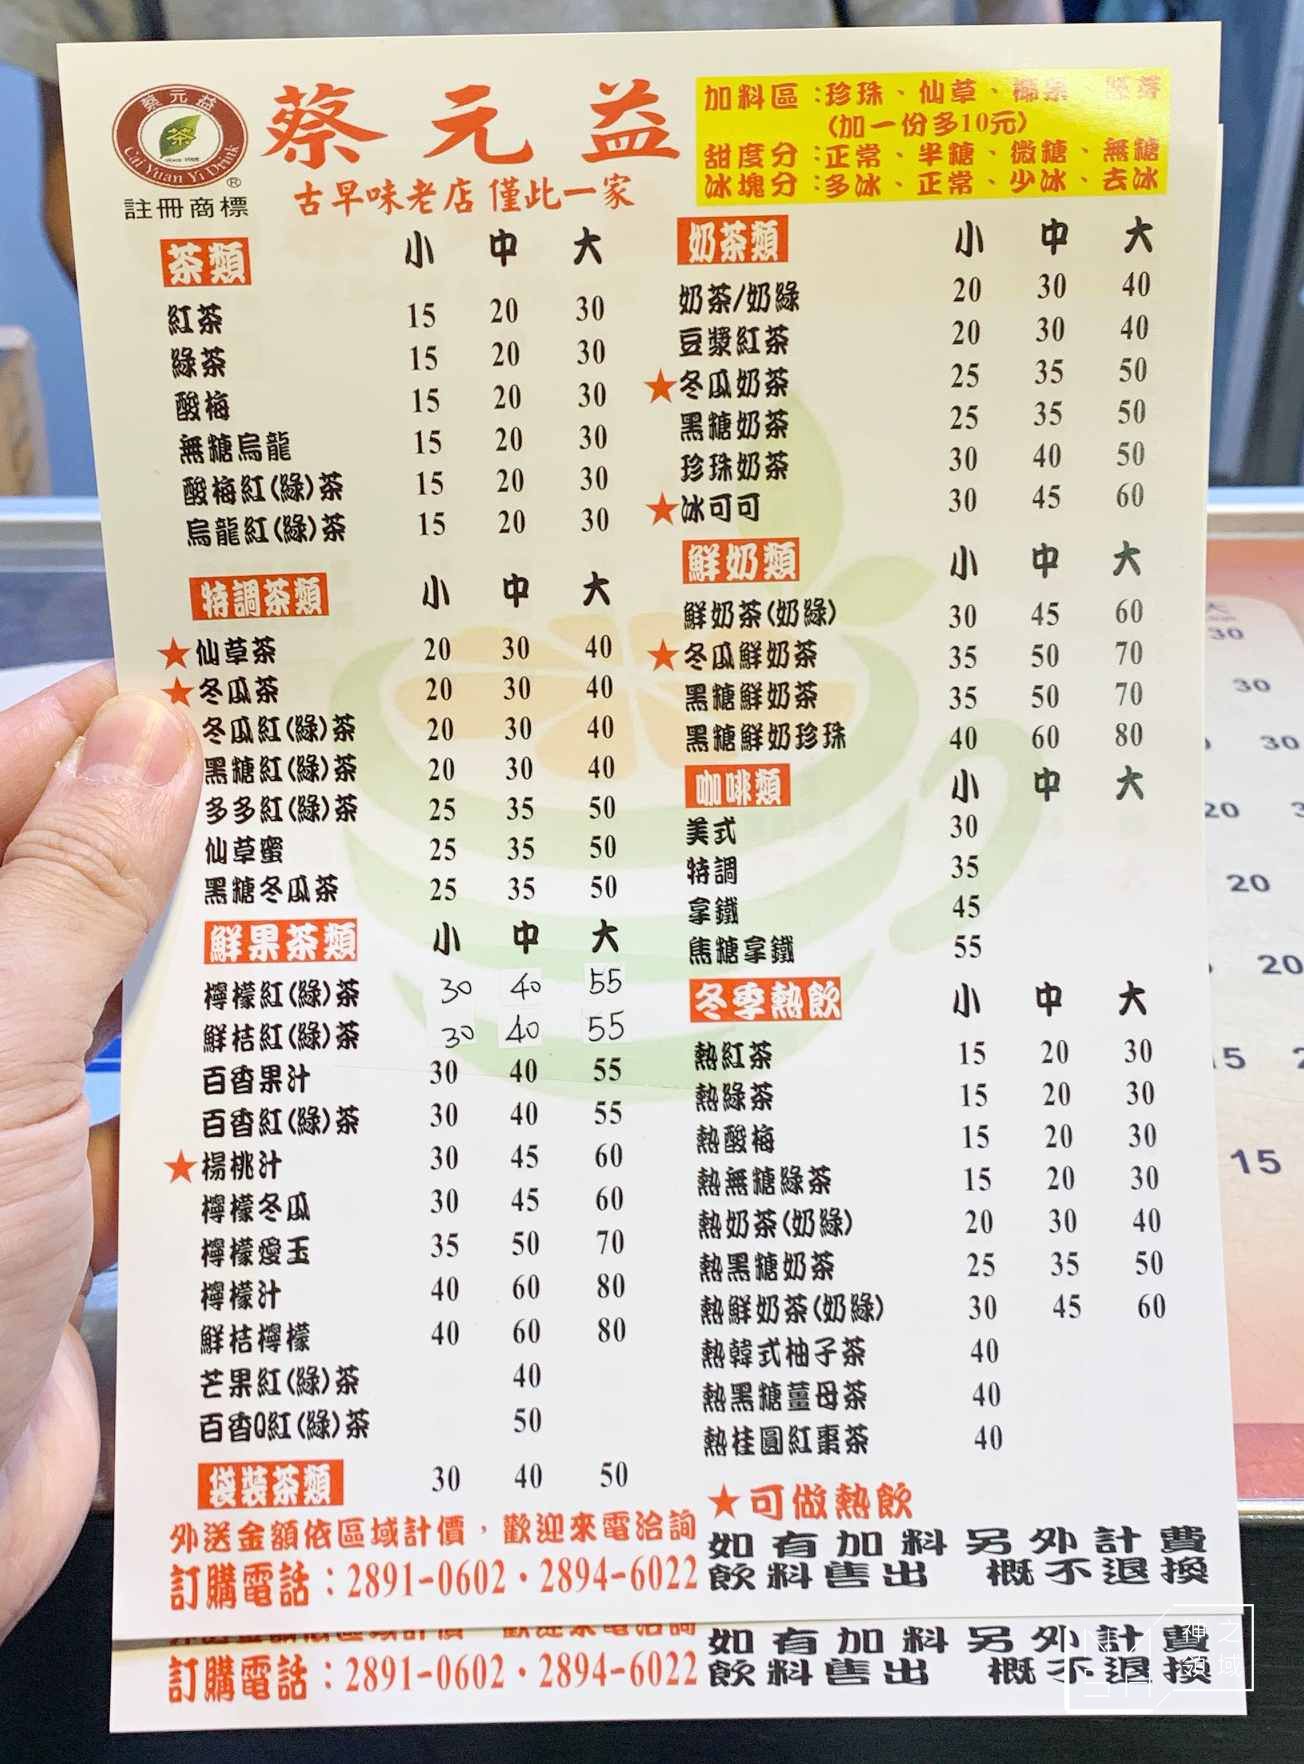 蔡元益
茶
Cai Yuan Yi Drink
®
註冊商標
蔡元益
古早味老店 僅此一家
加料區：珍珠、仙草、椰果、
(加一份多10元)
甜度分：正常、半糖、微糖、無糖
冰塊分：多冰、正常、少冰、去冰
茶類 小 中 大
紅茶 15 20 30
綠茶 15 20 30
酸梅 15 20 30
無糖烏龍 15 20 30
酸梅紅(綠)茶 15 20 30
烏龍紅(綠)茶 15 20 30
特調茶類 小 中 大
★仙草茶 20 30 40
★冬瓜茶 20 30 40
冬瓜紅(綠)茶 20 30 40
黑糖紅(綠)茶 20 30 40
多多紅(綠)茶 25 35 50
仙草蜜 25 35 50
黑糖冬瓜茶 25 35 50
鮮果茶類 小 中 大
檸檬紅(綠)茶 30 40 55
鮮桔紅(綠)茶 30 40 55
百香果汁 30 40 55
百香紅(綠)茶 30 40 55
★楊桃汁 30 45 60
檸檬冬瓜 30 45 60
檸檬愛玉 35 50 70
檸檬汁 40 60 80
鮮桔檸檬 40 60 80
芒果紅(綠)茶 40
百香Q紅(綠)茶 50
袋裝茶類 30 40 50
外送金額依區域計價，歡迎來電洽詢
訂購電話：2891-0602・2894-6022
奶茶類 小 中 大
奶茶/奶綠 20 30 40
豆漿紅茶 20 30 40
★冬瓜奶茶 25 35 50
黑糖奶茶 25 35 50
珍珠奶茶 30 40 50
★冰可可 30 45 60
鮮奶類 小 中 大
鮮奶茶(奶綠) 30 45 60
★冬瓜鮮奶茶 35 50 70
黑糖鮮奶茶 35 50 70
黑糖鮮奶珍珠 40 60 80
咖啡類 小 中 大
美式 30
特調 35
拿鐵 45
焦糖拿鐵 55
冬季熱飲 小 中 大
熱紅茶 15 20 30
熱綠茶 15 20 30
熱酸梅 15 20 30
熱無糖綠茶 15 20 30
熱奶茶(奶綠) 20 30 40
熱黑糖奶茶 25 35 50
熱鮮奶茶(奶綠) 30 45 60
熱韓式柚子茶 40
熱黑糖薑母茶 40
熱桂圓紅棗茶 40
★可做熱飲
如有加料另外計費
飲料售出 概不退換
訂購電話：2891-0602・2894-6022
如有加料另外計費
飲料售出 概不退換
大
30
30
30
20
20
20
15
15
神之領域